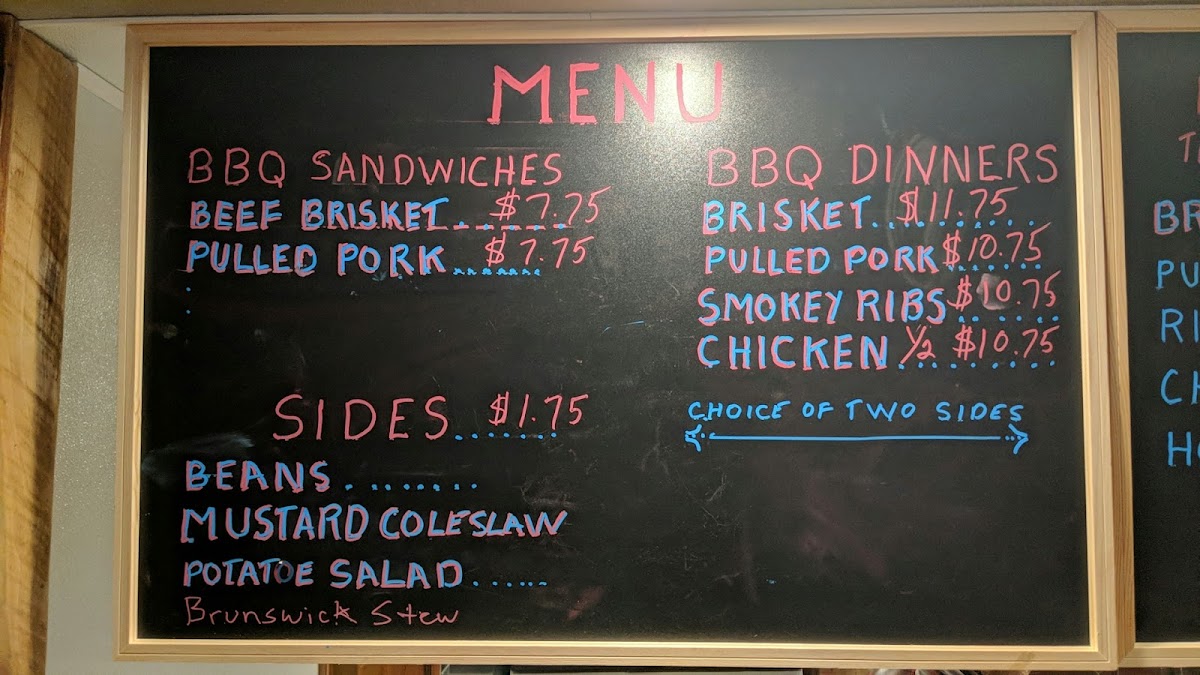 MENU
BBQ SANDWICHES
BEEF BRISKET..$7.75
PULLED PORK...$7.75
SIDES...$1.75
BEANS........
MUSTARD COLESLAW
POTATOE SALAD......
Brunswick Stew
BBQ DINNERS
BRISKET..$11.75
PULLED PORK $10.75
SMOKEY RIBS $10.75
CHICKEN 1/2 $10.75
CHOICE OF TWO SIDES